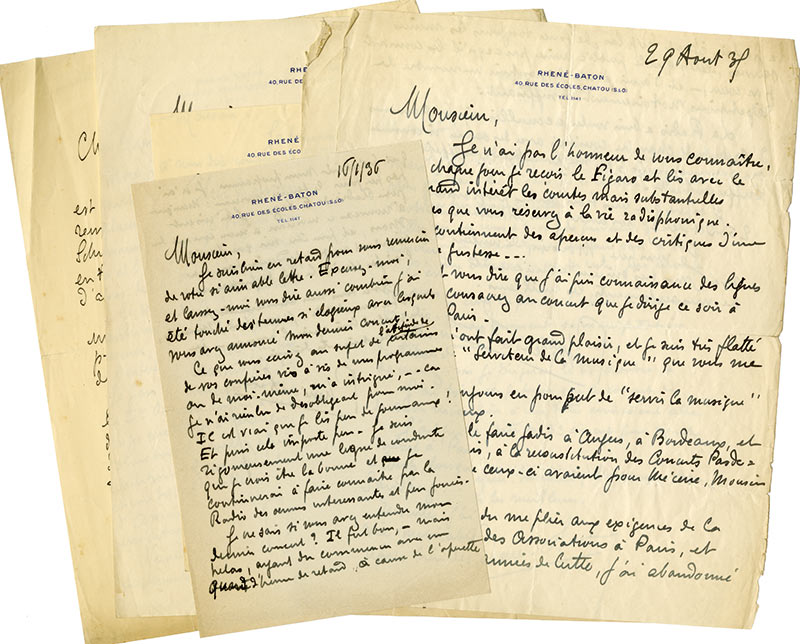 RHENÉ-BATON
40, RUE DES ÉCOLES, CHATOU (S.&O.)
TEL. 1141
16/1/36
Monsieur,
Je suis bien en retard pour vous remercier
de votre si aimable lettre. Excusez-moi,
et laissez-moi vous dire aussi combien j'ai
été touché des termes si élogieux avec lesquels
vous avez annoncé mon dernier concert!
Ce que vous écrivez au sujet de l'attitude de certains
de vos confrères vis à vis de mes programmes
ou de moi-même, m'a intrigué, -- car
je n'ai rien lu de désobligeant pour moi.
Il est vrai que je lis peu de journaux!
Et puis cela importe peu. Je suis
rigoureusement une ligne de conduite
que je crois être la bonne et je
continuerai à faire connaître par la
Radio des œuvres intéressantes et peu jouées.
Je ne sais si vous avez entendu mon
dernier concert? Il fut bon, - mais
hélas, ayant du commencer avec un
quart d'heure de retard, à cause de l'opérette
29 Août 35
RHENÉ-BATON
40, RUE DES ÉCOLES, CHATOU (S.&O.)
TEL. 1141
Monsieur,
Je n'ai pas l'honneur de vous connaître,
chaque jour je reçois le Figaro et lis avec le
grand intérêt les courtes mais substantielles
es que vous réservez à la vie radiophonique.
contiennent des aperçus et des critiques d'une
justesse ---
vous dire que j'ai pris connaissance des lignes
consacrez au concert que je dirige ce soir à
Paris.
m'ont fait grand plaisir, et je suis très flatté
"Serviteur de la musique" que vous me
"servir la musique"
le faire jadis à Angers, à Bordeaux, et
à la reconstitution des Concerts Pasde=
ceux-ci avaient pour Mécène, Monsieur
du me plier aux exigences de la
des Associations à Paris, et
années de lutte, j'ai abandonné
RHENÉ
40, RUE DES ÉCO
RHENÉ-B
40, RUE DES ÉCOLES
est